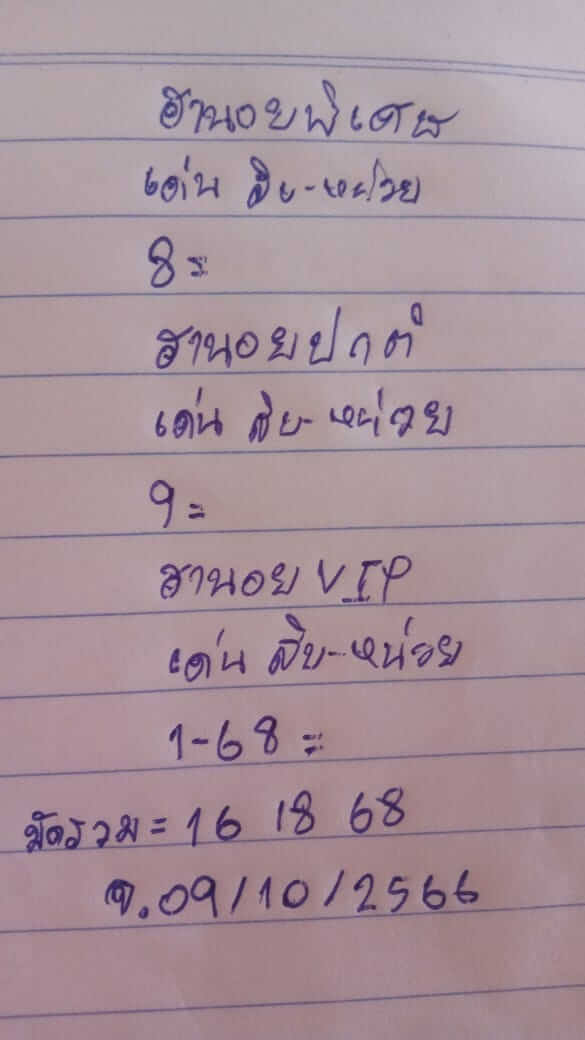 ฮานอยพิเศษ
เด่น สิบ-หน่วย
8=
ฮานอยปกติ
เด่น สิบ-หน่วย
9=
ฮานอย VIP
เด่น สิบ-หน่วย
1-68 =
มัดรวม = 16 18 68
จ.09/10/2566